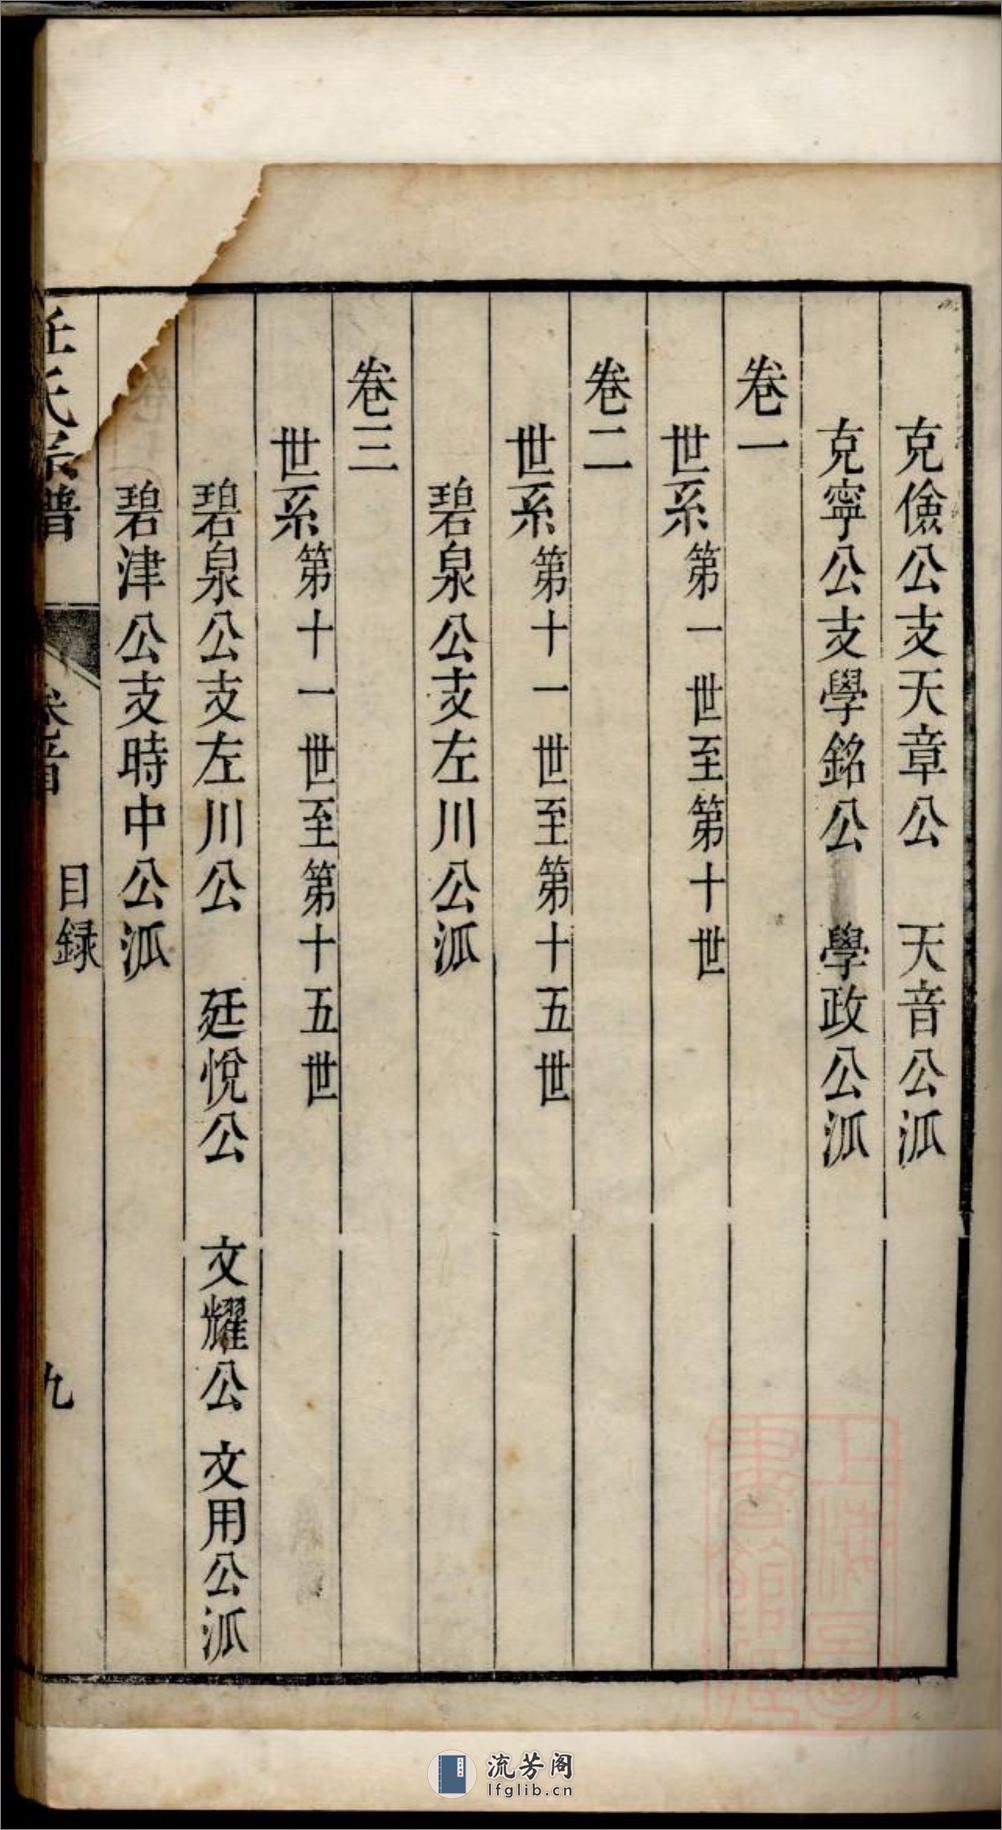 克儉公支天章公　天音公泒
克寧公支學銘公　學政公泒
卷一
世系第一世至第十世
卷二
世系第十一世至第十五世
碧泉公支左川公泒
卷三
世系第十一世至第十五世
碧泉公支左川公　廷悅公　文耀公　文用公泒
碧津公支時中公泒
任氏宗譜　卷首　目録　九
上海圖書館藏
流芳阁
lfglib.cn